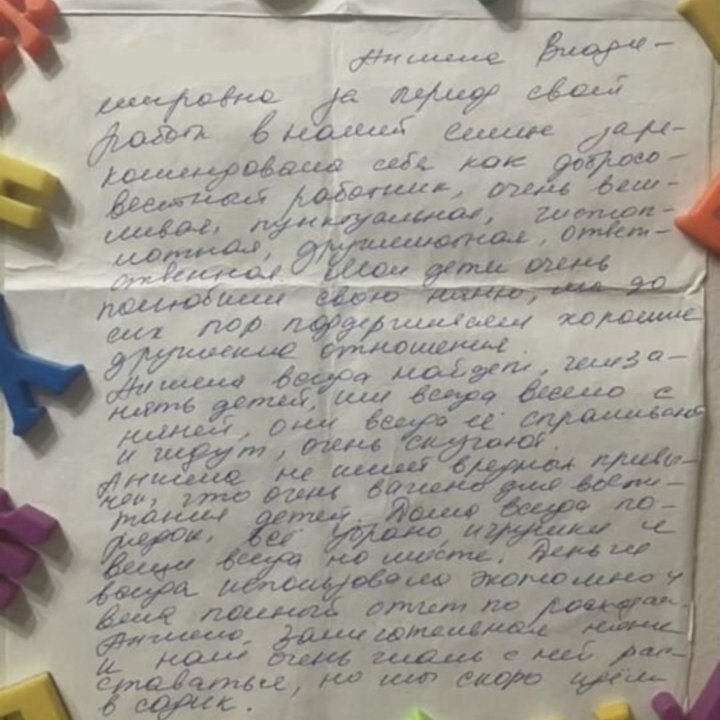 Анжела Влади-
мировна за период своей
работы в нашей семье заре-
комендовала себя как добросо-
вестный работник, очень веж-
ливая, пунктуальная, чистоп-
лотная, дружелюбная, ответ-
ственная. Мои дети очень
полюбили свою няню, мы до
сих пор поддерживаем хорошие
дружеские отношения.
Анжела всегда найдёт, чем за-
нять детей, им всегда весело с
няней, они всегда её спрашивают
и ждут, очень скучают.
Анжела не имеет вредных привы-
чек, что очень важно для воспи-
тания детей. Дома всегда по-
рядок, всё убрано, игрушки и
вещи всегда на месте. Деньги
всегда использовала экономно и
вела полный отчет по расходам.
Анжела замечательная няня
и нам очень жаль с ней рас-
ставаться, но мы скоро идём
в садик.